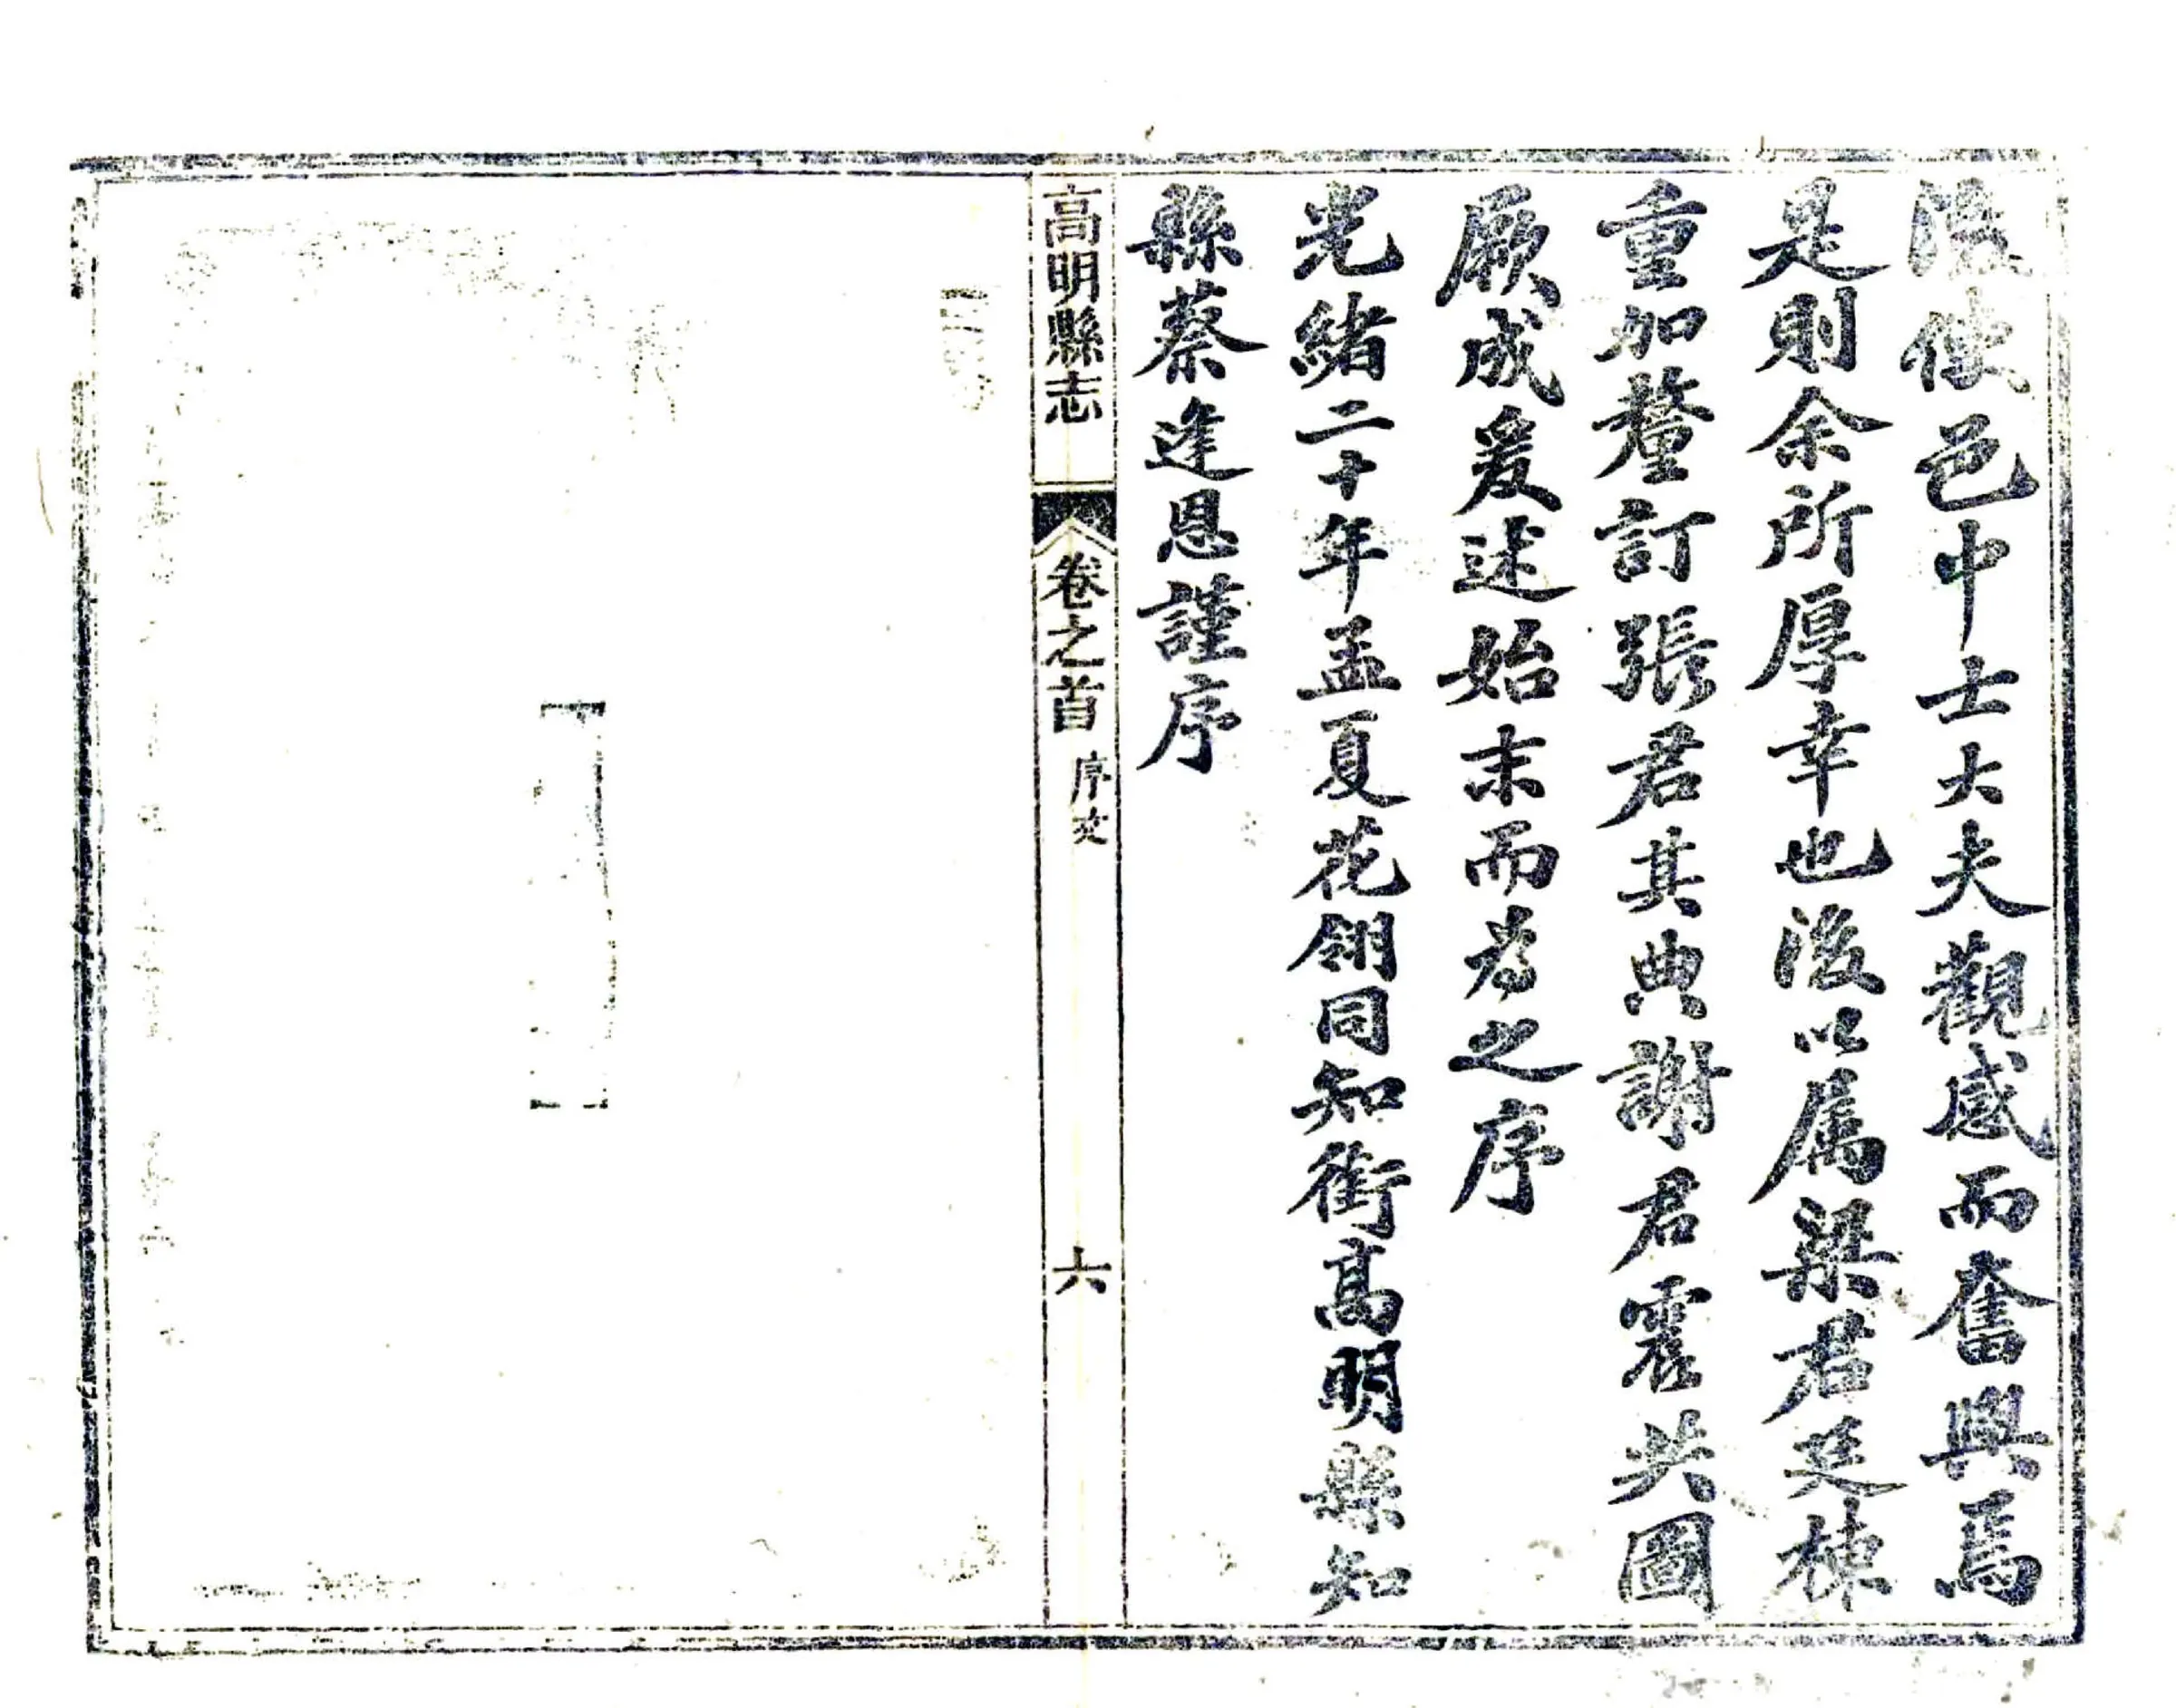 後使邑中士大夫觀感而奮興焉
是則余所厚幸也後以属梁君廷棟
重加釐訂張君其典謝君霖共圖
厥成爰述始末而為之序
光緒二十年孟夏花翎同知銜高明縣知
縣蔡逢恩謹序
高明縣志
卷之首
序文
六